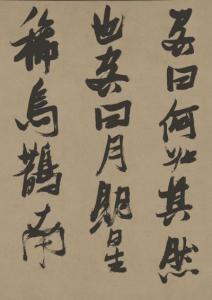 客曰何為其然
也客曰月明星
稀烏鵲南